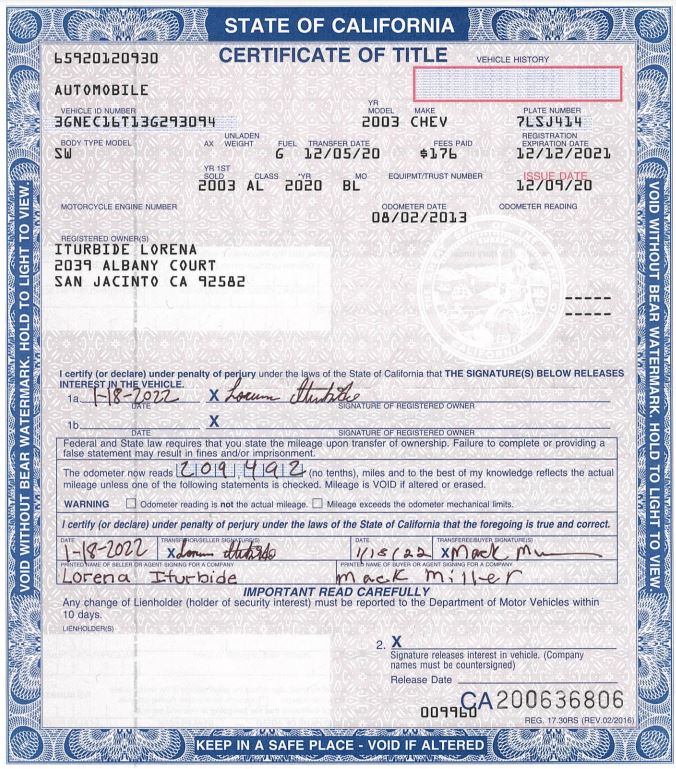 STATE OF CALIFORNIA
CERTIFICATE OF TITLE
65920120930
VEHICLE HISTORY
AUTOMOBILE
VEHICLE ID NUMBER YR MODEL MAKE PLATE NUMBER
3GNEC16T13G293094 2003 CHEV 7LSJ414
BODY TYPE MODEL AX UNLADEN WEIGHT FUEL TRANSFER DATE FEES PAID REGISTRATION EXPIRATION DATE
SW G 12/05/20 $176 12/12/2021
YR 1ST SOLD CLASS *YR MO EQUIPMT/TRUST NUMBER ISSUE DATE
2003 AL 2020 BL 12/09/20
MOTORCYCLE ENGINE NUMBER ODOMETER DATE ODOMETER READING
08/02/2013
REGISTERED OWNER(S)
ITURBIDE LORENA
2039 ALBANY COURT
SAN JACINTO CA 92582
-----
-----
I certify (or declare) under penalty of perjury under the laws of the State of California that THE SIGNATURE(S) BELOW RELEASES
INTEREST IN THE VEHICLE.
1a. 1-18-2022 X
DATE SIGNATURE OF REGISTERED OWNER
1b. X
DATE SIGNATURE OF REGISTERED OWNER
Federal and State law requires that you state the mileage upon transfer of ownership. Failure to complete or providing a
false statement may result in fines and/or imprisonment.
The odometer now reads 209,492 (no tenths), miles and to the best of my knowledge reflects the actual
mileage unless one of the following statements is checked. Mileage is VOID if altered or erased.
WARNING Odometer reading is not the actual mileage. Mileage exceeds the odometer mechanical limits.
I certify (or declare) under penalty of perjury under the laws of the State of California that the foregoing is true and correct.
DATE TRANSFEROR/SELLER SIGNATURE(S) DATE TRANSFEREE/BUYER SIGNATURE(S)
1-18-2022 X 1/18/22 X Mack
PRINTED NAME OF SELLER OR AGENT SIGNING FOR A COMPANY PRINTED NAME OF BUYER OR AGENT SIGNING FOR A COMPANY
Lorena Iturbide Mack Miller
IMPORTANT READ CAREFULLY
Any change of Lienholder (holder of security interest) must be reported to the Department of Motor Vehicles within
10 days.
LIENHOLDER(S)
2. X
Signature releases interest in vehicle. (Company
names must be countersigned)
Release Date
CA200636806
009960
REG. 17.30RS (REV.02/2016)
KEEP IN A SAFE PLACE - VOID IF ALTERED
VOID WITHOUT BEAR WATERMARK. HOLD TO LIGHT TO VIEW.
VOID WITHOUT BEAR WATERMARK. HOLD TO LIGHT TO VIEW